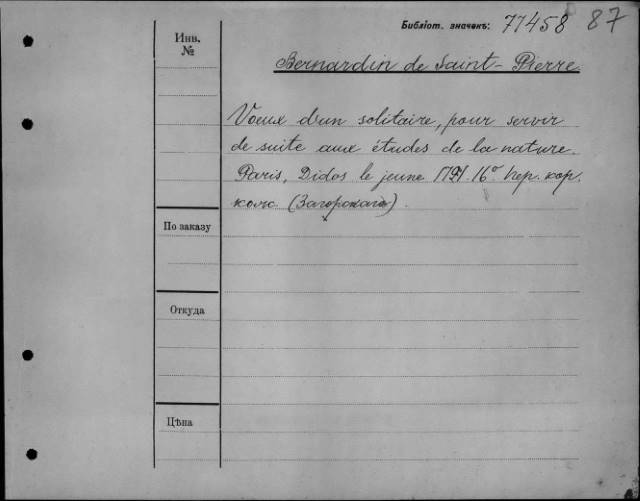 Библіот. значекъ: 77458 87
Инв.
№
Bernardin de Saint-Pierre
Voeux d'un solitaire, pour servir
de suite aux études de la nature.
Paris, Didos le jeune 1791. 16° пер. кор.
кож (Загорскаго).
По заказу
Откуда
Цѣна